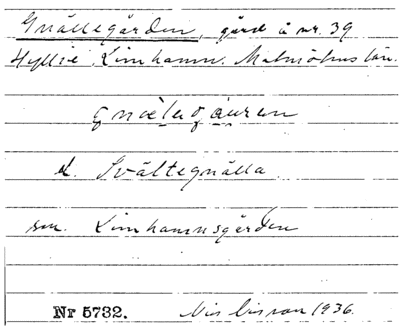 Gnällegården, gård å nr. 39
Hyllie Limhamn. Malmöhus län.
gnälegåuren
el. Svältegnälla
sen. Limhamnsgården
Nr 5732. 1936.